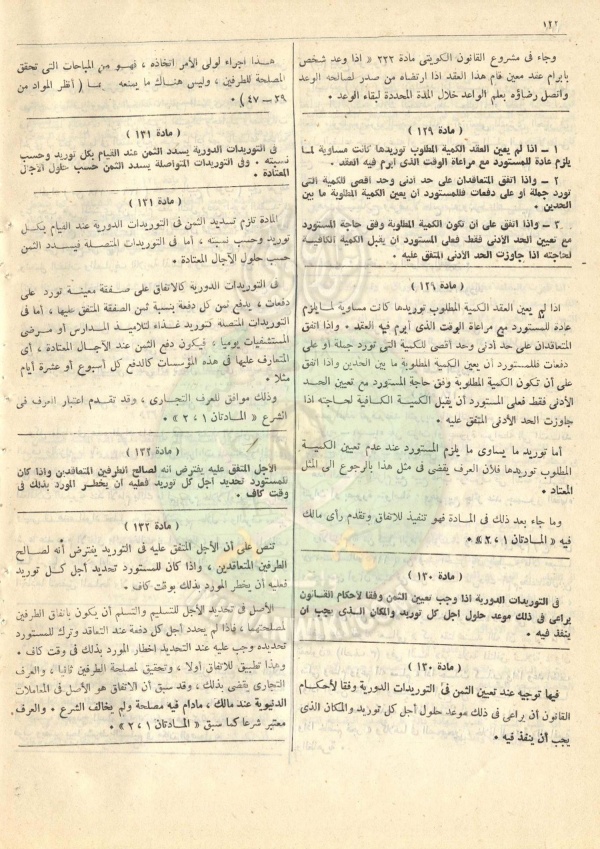 ١٢٢
وجاء فى مشروع القانون الكويتى مادة ٢٢٢ « اذا وعد شخص
بابرام عند معين قام هذا العقد اذا ارتضاه من صدر لصالحه الوعد
واتصل رضاؤه بعلم الواعد خلال المدة المحددة لبقاء الوعد .
( مادة ١٢٩ )
١ ــ اذا لم يعين العقد الكمية المطلوب توريدها كانت مساوية لما
يلزم عادة للمستورد مع مراعاة الوقت الذى ابرم فيه العقد .
٢ ــ واذا اتفق المتعاقدان على حد ادنى وحد اقصى للكمية التى
تورد جملة أو على دفعات فللمستورد أن يعين الكمية المطلوبة ما بين
الحدين .
٣ ــ واذا اتفق على ان تكون الكمية المطلوبة وفق حاجة المستورد
مع تعيين الحد الادنى فقط فعلى المستورد ان يقبل الكمية الكافية
لحاجته اذا جاوزت الحد الادنى المتفق عليه .
( مادة ١٢٩ )
اذا لم يعين العقد الكمية المطلوب توريدها كانت مساوية لما يلزم
عادة للمستورد مع مراعاة الوقت الذى أبرم فيه العقد . واذا اتفق
المتعاقدان على حد أدنى وحد أقصى للكمية التى تورد جملة أو على
دفعات فللمستورد أن يعين الكمية المطلوبة ما بين الحدين واذا اتفق
على أن تكون الكمية المطلوبة وفق حاجة المستورد مع تعيين الحد
الأدنى فقط فعلى المستورد أن يقبل الكمية الكافية لحاجته اذا
جاوزت الحد الأدنى المتفق عليه .
أما توريد ما يساوى ما يلزم المستورد عند عدم تعيين الكمية
المطلوب توريدها فلأن العرف يقضى فى مثل هذا بالرجوع الى المثل
المعتاد .
وما جاء بعد ذلك فى المادة فهو تنفيذ للاتفاق وتقدم رأى مالك
فيه « المادتان ١ ، ٢ » .
( مادة ١٣٠ )
فى التوريدات الدورية اذا وجب تعيين الثمن وفقا لأحكام القانون
يراعى فى ذلك موعد حلول اجل كل توريد والمكان الذى يجب ان
ينفذ فيه .
( مادة ١٣٠ )
فيها توجيه عند تعيين الثمن فى التوريدات الدورية وفقا لأحكام
القانون أن يراعى فى ذلك موعد حلول أجل كل توريد والمكان الذى
يجب أن ينفذ فيه .
هذا اجراء لولى الأمر اتخاذه ، فهو من المباحات التى تحقق
المصلحة للطرفين ، وليس هناك ما يمنعه ( أنظر المواد من
٣٩ ــ ٤٧ ) .
( مادة ١٣١ )
فى التوريدات الدورية يسدد الثمن عند القيام بكل توريد وحسب
نسبته . وفى التوريدات المتواصلة يسدد الثمن حسب حلول الآجال
المعتادة .
( مادة ١٣١ )
المادة تلزم تسديد الثمن فى التوريدات الدورية عند القيام بكل
توريد وحسب نسبته ، أما فى التوريدات المتصلة فيسدد الثمن
حسب حلول الآجال المعتادة .
فى التوريدات الدورية كالاتفاق على صفقة معينة تورد على
دفعات ، يدفع ثمن كل دفعة بنسبة ثمن الصفقة المتفق عليها ، أما فى
التوريدات المتصلة كتوريد غذاء لتلاميذ المدارس أو مرضى
المستشفيات يوميا ، فيكون دفع الثمن عند الآجال المعتادة ، أى
المتعارف عليها فى هذه المؤسسات كالدفع كل أسبوع أو عشرة أيام
مثلا .
وذلك موافق للعرف التجارى ، وقد تقدم اعتبار العرف فى
الشرع « المادتان ١ ، ٢ » .
( مادة ١٣٢ )
الأجل المتفق عليه يفترض أنه لصالح الطرفين المتعاقدين واذا كان
للمستورد تحديد اجل كل توريد فعليه أن يخطر المورد بذلك فى
وقت كاف .
( مادة ١٣٢ )
تنص على أن الأجل المتفق عليه فى التوريد يفترض أنه لصالح
الطرفين المتعاقدين ، واذا كان للمستورد تحديد أجل كل توريد
فعليه أن يخطر المورد بذلك بوقت كاف .
الأصل فى تحديد الأجل للتسليم والتسلم أن يكون باتفاق الطرفين
لمصلحتهما ، فاذا لم يحدد أجل كل دفعة عند التعاقد وترك للمستورد
تحديده وجب عليه عند التحديد اخطار المورد بذلك فى وقت كاف .
وهذا تطبيق للاتفاق أولا ، وتحقيق لمصلحة الطرفين ثانيا ، والعرف
التجارى يقضى بذلك ، وقد سبق أن الاتفاق هو الأصل فى المعاملات
الدنيوية عند مالك ، مادام فيه مصلحة ولم يخالف الشرع . والعرف
معتبر شرعا كما سبق « المادتان ١ ، ٢ » .